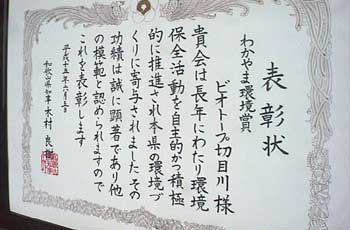 表彰状
わかやま環境賞
ビオトープ切目川様
貴会は長年にわたり環境
保全活動を自主的かつ積極
的に推進され本県の環境づ
くりに寄与されました その
功績は誠に顕著であり他
の模範と認められますので
これを表彰します
平成十五年六月五日
和歌山県知事 木村良樹